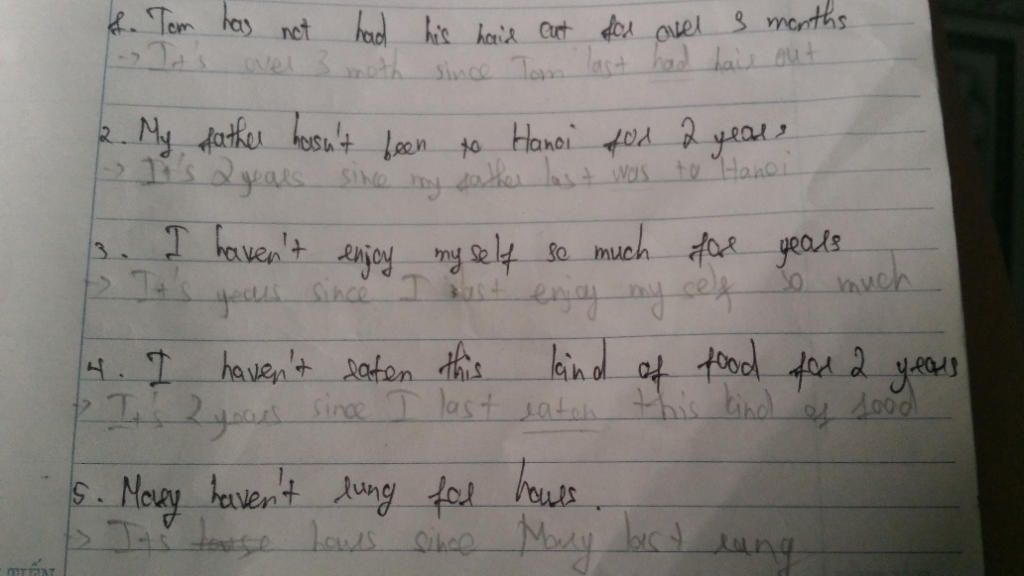 1. Tom has not had his hair cut for over 3 months
-> It's over 3 moth since Tom last had hair cut
2. My father hasn't been to Hanoi for 2 years
-> It's 2 years since my father last was to Hanoi
3. I haven't enjoy my self so much for years
-> It's years since I last enjoy my self so much
4. I haven't eaten this kind of food for 2 years
-> It's 2 years since I last eaten this kind of food
5. Mary haven't rung for hours.
-> Its hours since Mary last rung
TIẾN